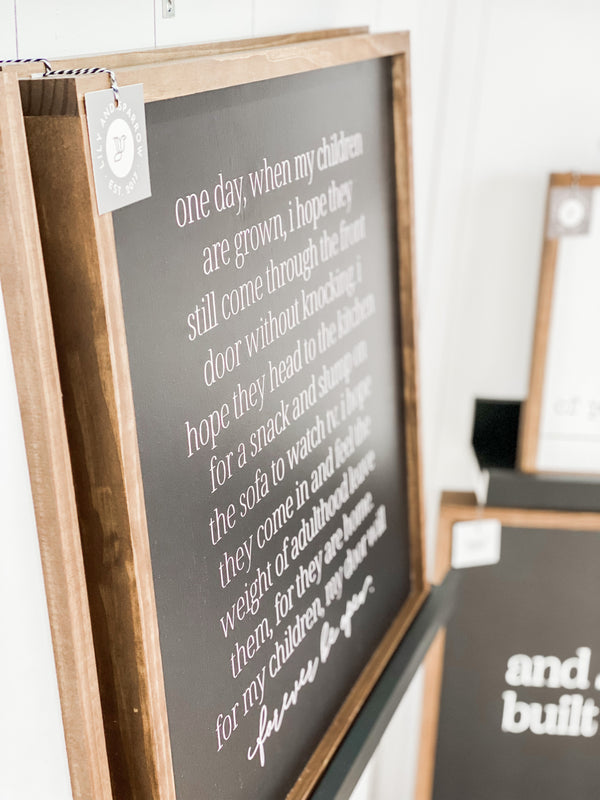 LILY AND SPARROW
EST. 2017
one day, when my children
are grown, i hope they
still come through the front
door without knocking. i
hope they head to the kitchen
for a snack and slump on
the sofa to watch tv. i hope
they come in and feel the
weight of adulthood leave
them, for they are home.
for my children, my door will
forever be open.
and
built